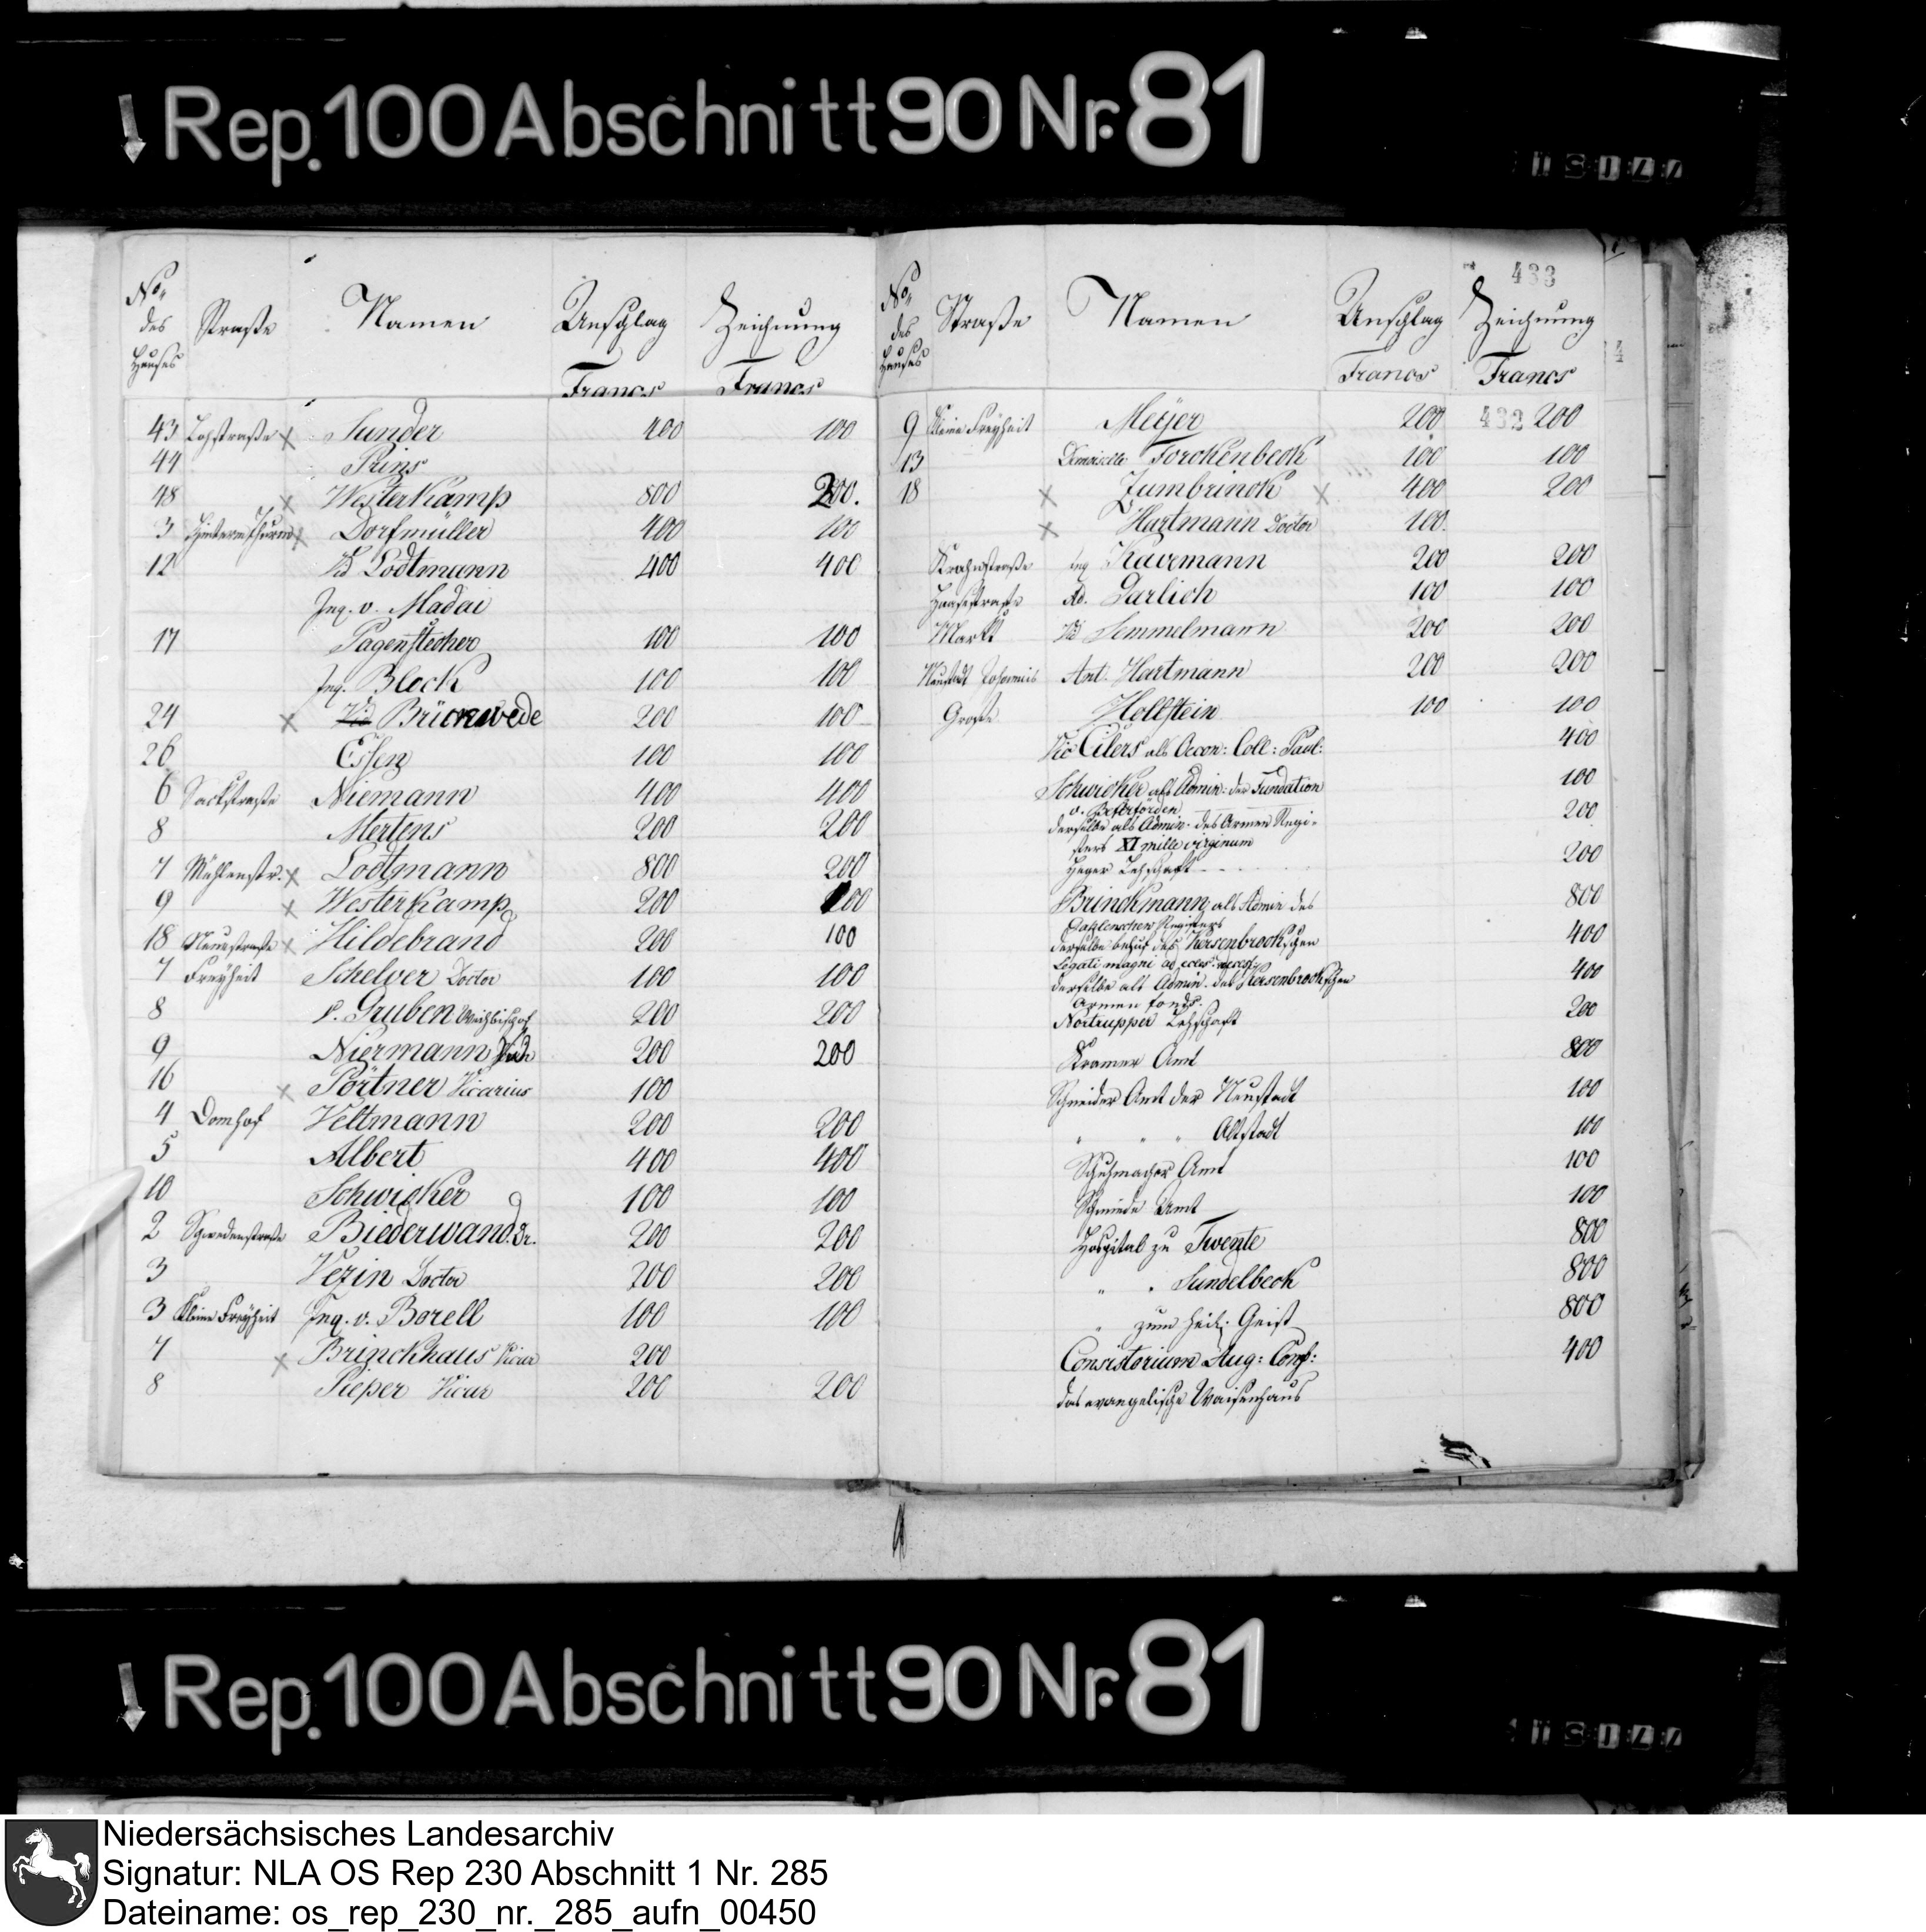 Rep. 100 Abschnitt 90 Nr. 81
No des Hauses Straße Namen Anschlag Francs Zeichnung Francs
43 Lohstraße x Sunder 400 100
44 Prins
48 x Westerkamp 800 200.
3 Hinterm Thurm x Dorfmüller 400 100
12 Lodtmann 400 400
Ing. v. Madai
17 Pagenstecher 100 100
Ing. Block 100 100
24 x Brickwede 200 100
26 Essen 100 100
6 Sackstraße Niemann 400 400
8 Mertens 200 200
7 Mühlenstr. x Lodtmann 800 200
9 x Westerkamp 200 100
18 Neuestraße x Hildebrand 200 100
7 Freyheit Schelver Doctor 100 100
8 v. Gruben Weihbischof 200 200
9 Niermann 200 200
16 x Pörtner Vicarius 100
4 Domhof Veltmann 200 200
5 Albert 400 400
10 Schwicker 100 100
2 Schwedenstraße Biederwand. Dr. 200 200
3 Vezin Doctor 200 200
3 Kleine Freyheit Ing. v. Borell 100 100
7 x Brinckhaus Vicar 200
8 Pieper Vicar 200 200
433
No des Hauses Straße Namen Anschlag Francs Zeichnung Francs
9 Kleine Freyheit Meyer 200 432 200
13 Demoiselle Forckenbeck 100 100
18 x Zumbrinck x 400 200
x Hartmann Doctor 100.
Krahnstraße Ing Kavermann 200 200
Haasestraße Ad. Garlich 100 100
Markt Semmelmann 200 200
Neustadt Johannis Ant. Hartmann 200 200
Große Hollstein 100 100
Vic Eilers als Oecon: Coll: Paul: 400
Schwicker als Admin: der Fundation 100
derselbe als Admin. des Armen Regi- 200
sters XI mille virginum
Heger Lehschaft 200
Brinckmann als Admin des 800
Registers
derselbe behuf des Kersenbrockschen 400
Legati magni ad
derselbe als Admin. des Kersenbrockschen 400
Armen fonds.
Nortrupper Lehschaft 200
Kramer Amt 800
Schneider Amt der Neustadt 100
" " " Altstadt 100
Schuhmacher Amt 100
Schmiede Amt 100
Hospital zu Twente 800
" " Sundelbeck 800
" zum heil: Geist 800
Consistorium Aug: Conf: 400
das evangelische Waisenhaus
Rep. 100 Abschnitt 90 Nr. 81
Niedersächsisches Landesarchiv
Signatur: NLA OS Rep 230 Abschnitt 1 Nr. 285
Dateiname: os_rep_230_nr._285_aufn_00450